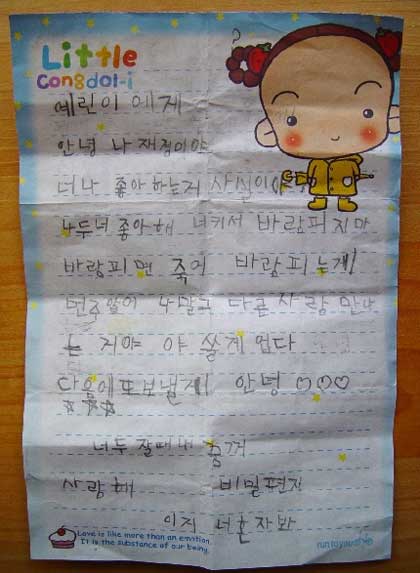 Little
Congdol-i
예린이에게
안녕 나 재정이야
너 나 좋아하는거 사실이야
나두 너 좋아해 너키서 바람피지마
바람피면 죽어 바람피는게!
나말고 다른 사람 만나
는 지야 야 쓸게 업다
다음에 또 보낼게 안녕 ♡♡♡
☆☆☆
너두 잘때 내 꿈꺼
사랑해 비밀편지
이거 너혼자봐
Love is like more than an emotion.
It is the substance of our being.
run to you